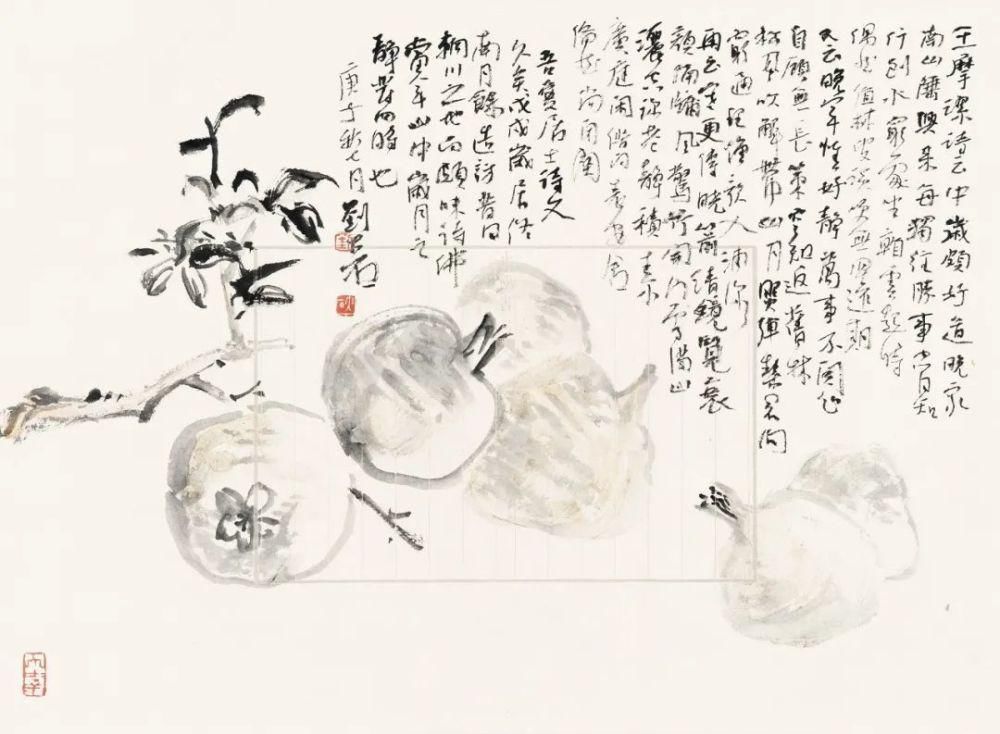 王摩詰詩云中歲頗好道晚家
南山陲興来每獨往勝事空自知
行到水窮處坐看雲起時
偶然值林叟談笑無還期
又云晚年惟好静萬事不関心
自顧無長策空知返舊林
松風吹解帶山月照彈琴君問
窮通理漁歌入浦深
再云寒更傳曉箭清鏡覽衰
顏隔牖風驚竹開門雪滿山
灑空深巷静積素
廣庭闲借問袁安舍
翛然尚闭關
詩文
久矣戊戌歲居
南月餘造訪昔日
輞川之地而頗味詩佛
當年山中歲月之
静
庚子秋七月劉